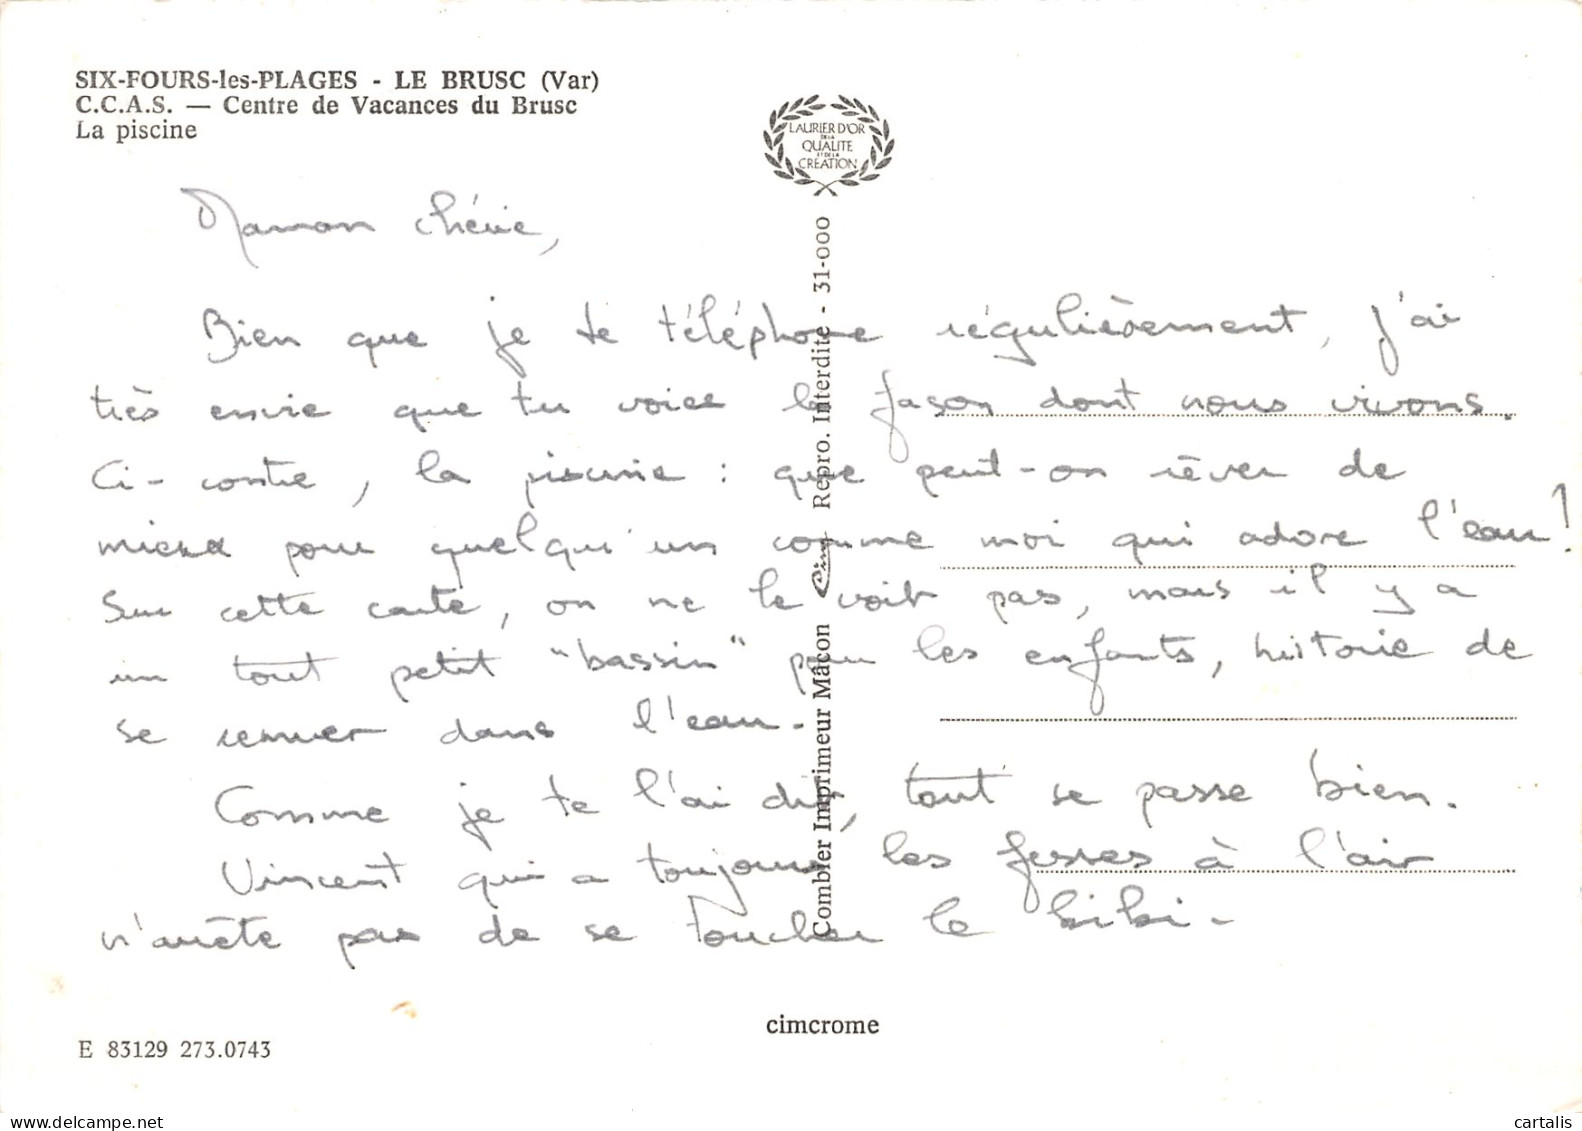 SIX-FOURS-les-PLAGES - LE BRUSC (Var)
C.C.A.S. — Centre de Vacances du Brusc
La piscine
LAURIER D'OR
DE LA
QUALITE
ET DE LA
CREATION
Maman chérie,
Bien que je te téléphone régulièrement, j'ai
très envie que tu voies la façon dont nous vivons.
Ci-contre, la piscine : que peut-on rêver de
mieux pour quelqu'un comme moi qui adore l'eau !
Sur cette carte, on ne le voit pas, mais il y a
un tout petit "bassin" pour les enfants, histoire de
se remuer dans l'eau.
Comme je te l'ai dit, tout se passe bien.
Vincent qui a toujours les fesses à l'air
n'arrête pas de se toucher le kiki.
Combier Imprimeur Mâcon Cim Repro. Interdite - 31-000
cimcrome
E 83129 273.0743
cartalis